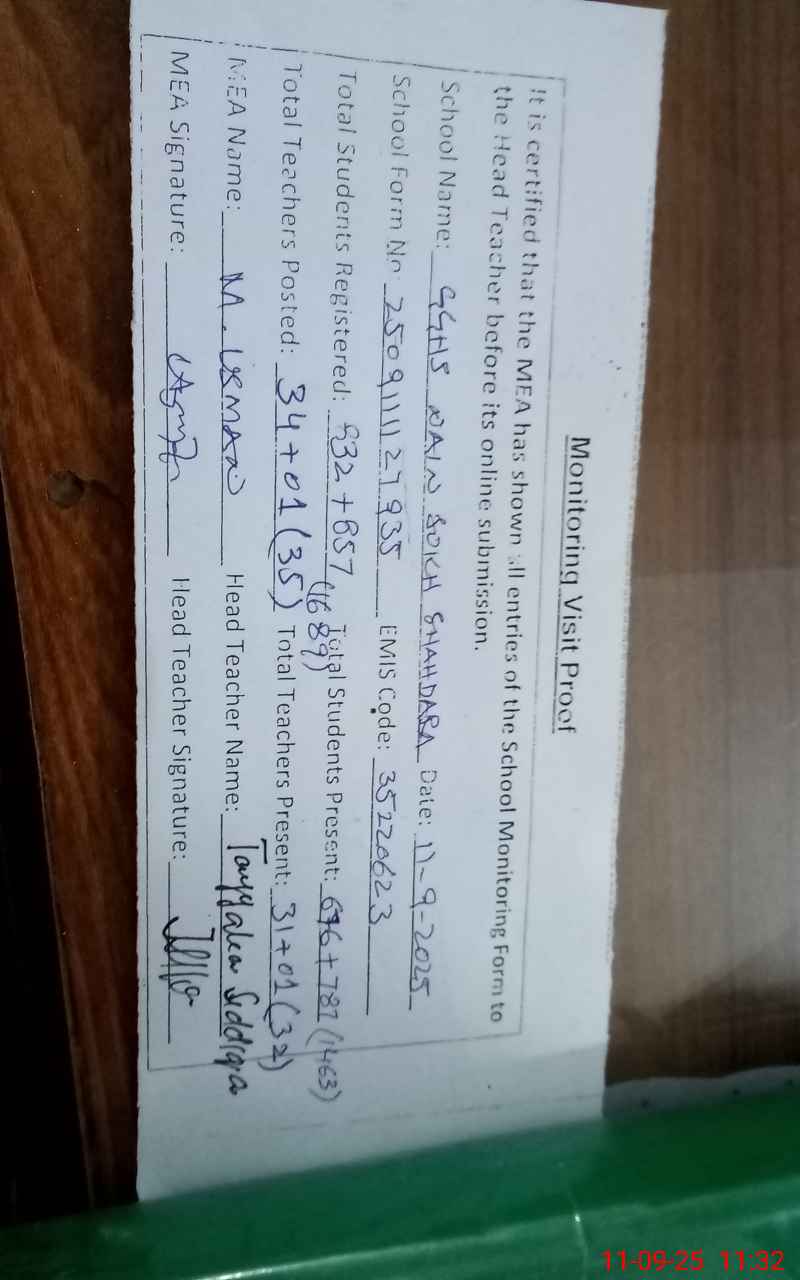 Monitoring Visit Proof
It is certified that the MEA has shown all entries of the School Monitoring Form to
the Head Teacher before its online submission.
School Name: GGHS NAIN SUKH SHAHDARA Date: 11-9-2025
School Form No: 2509111127935 EMIS Code: 35220623
Total Students Registered: 832+857 (1689) Total Students Present: 676+787 (1463)
Total Teachers Posted: 34+01(35) Total Teachers Present: 31+01(32)
MEA Name: M. USMAN Head Teacher Name: Tayyaba Siddiqa
MEA Signature: Head Teacher Signature:
11-09-25 11:32